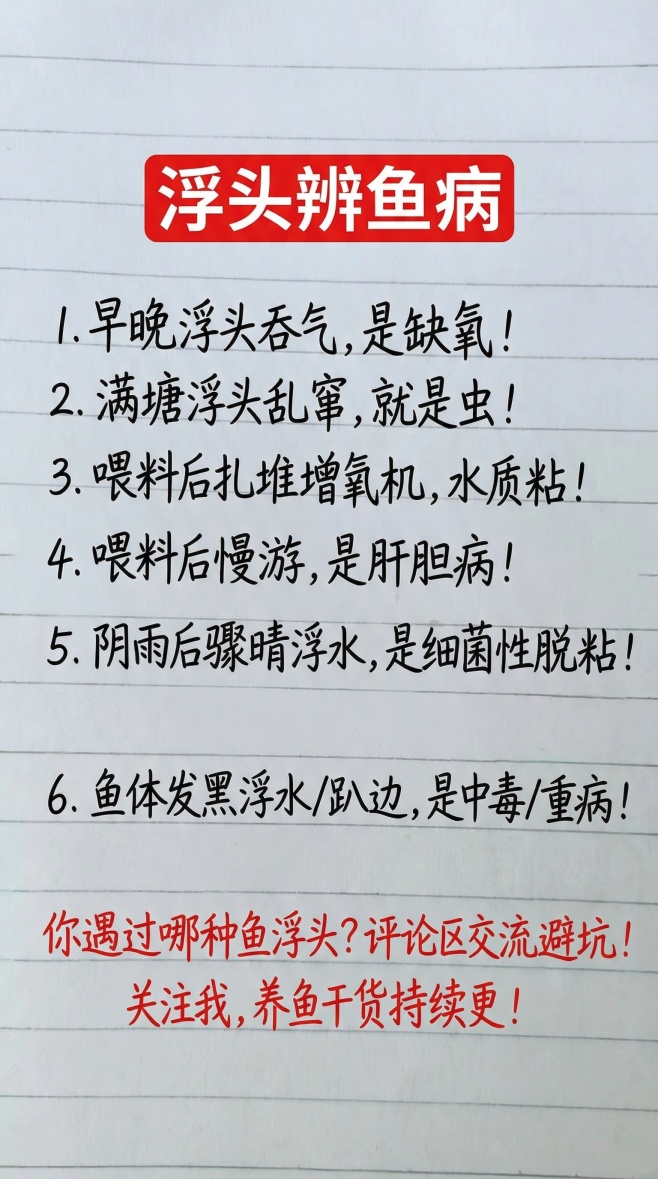 浮头辨鱼病
1.早晚浮头吞气,是缺氧!
2.满塘浮头乱窜,就是虫!
3.喂料后扎堆增氧机,水质粘!
4.喂料后慢游,是肝胆病!
5.阴雨后骤晴浮水,是细菌性脱粘!
6.鱼体发黑浮水/趴边,是中毒/重病!
你遇过哪种鱼浮头?评论区交流避坑!
关注我,养鱼干货持续更!